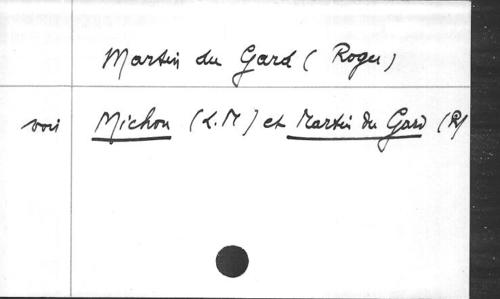 Martin du Gard (Roger)
voir Michon (L.M) et Martin du Gard (R)